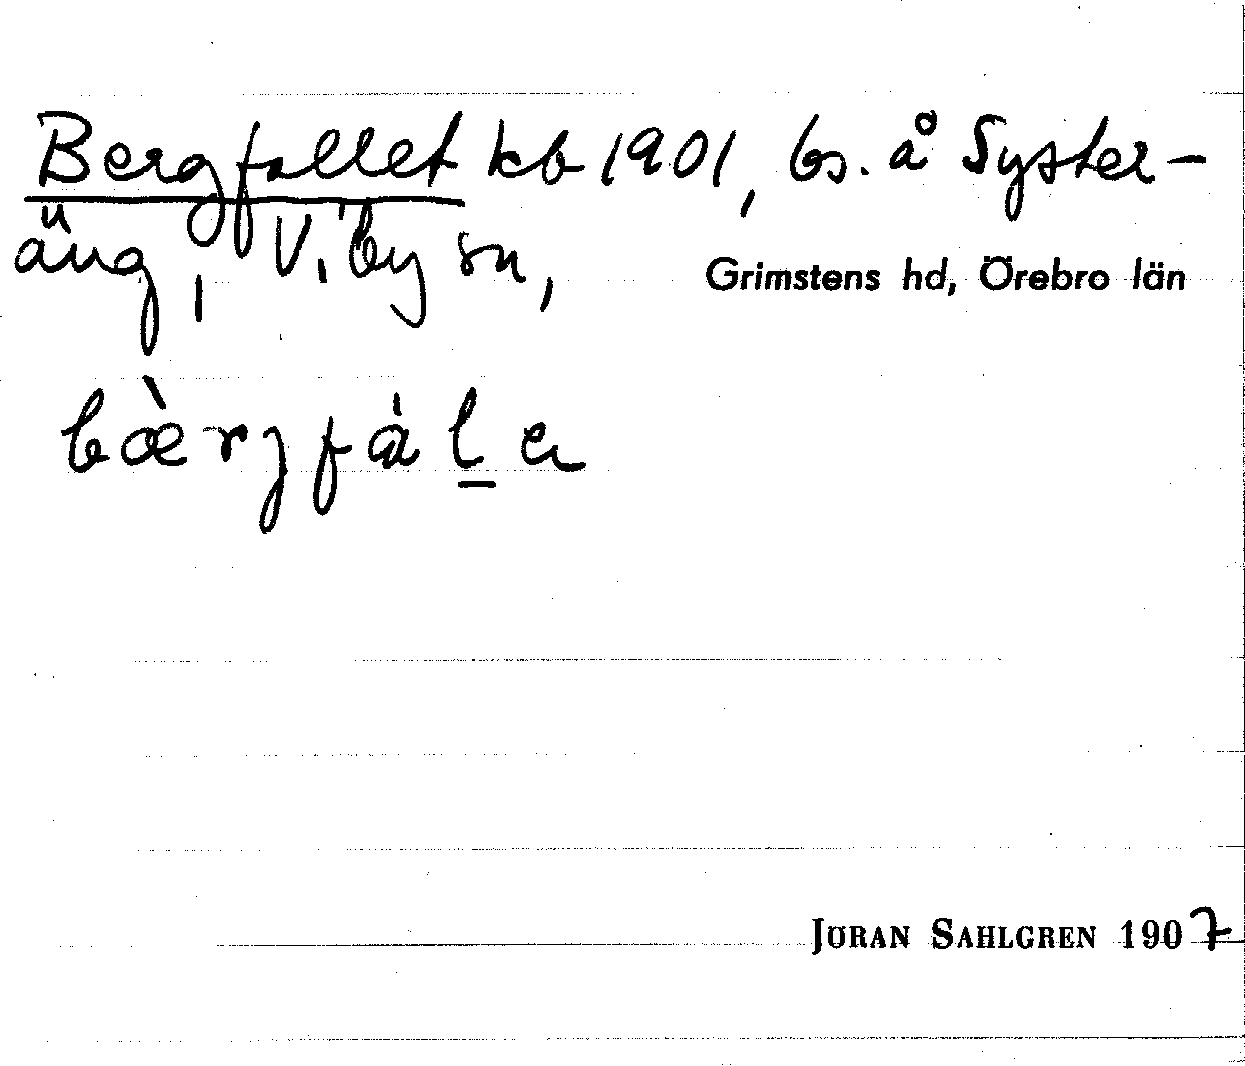 Bergfallet kb 1901, bs. å Syster-
äng, Viby sn,
Grimstens hd, Örebro län
bæ̀rjfàl̲a
JÖRAN SAHLGREN 1907